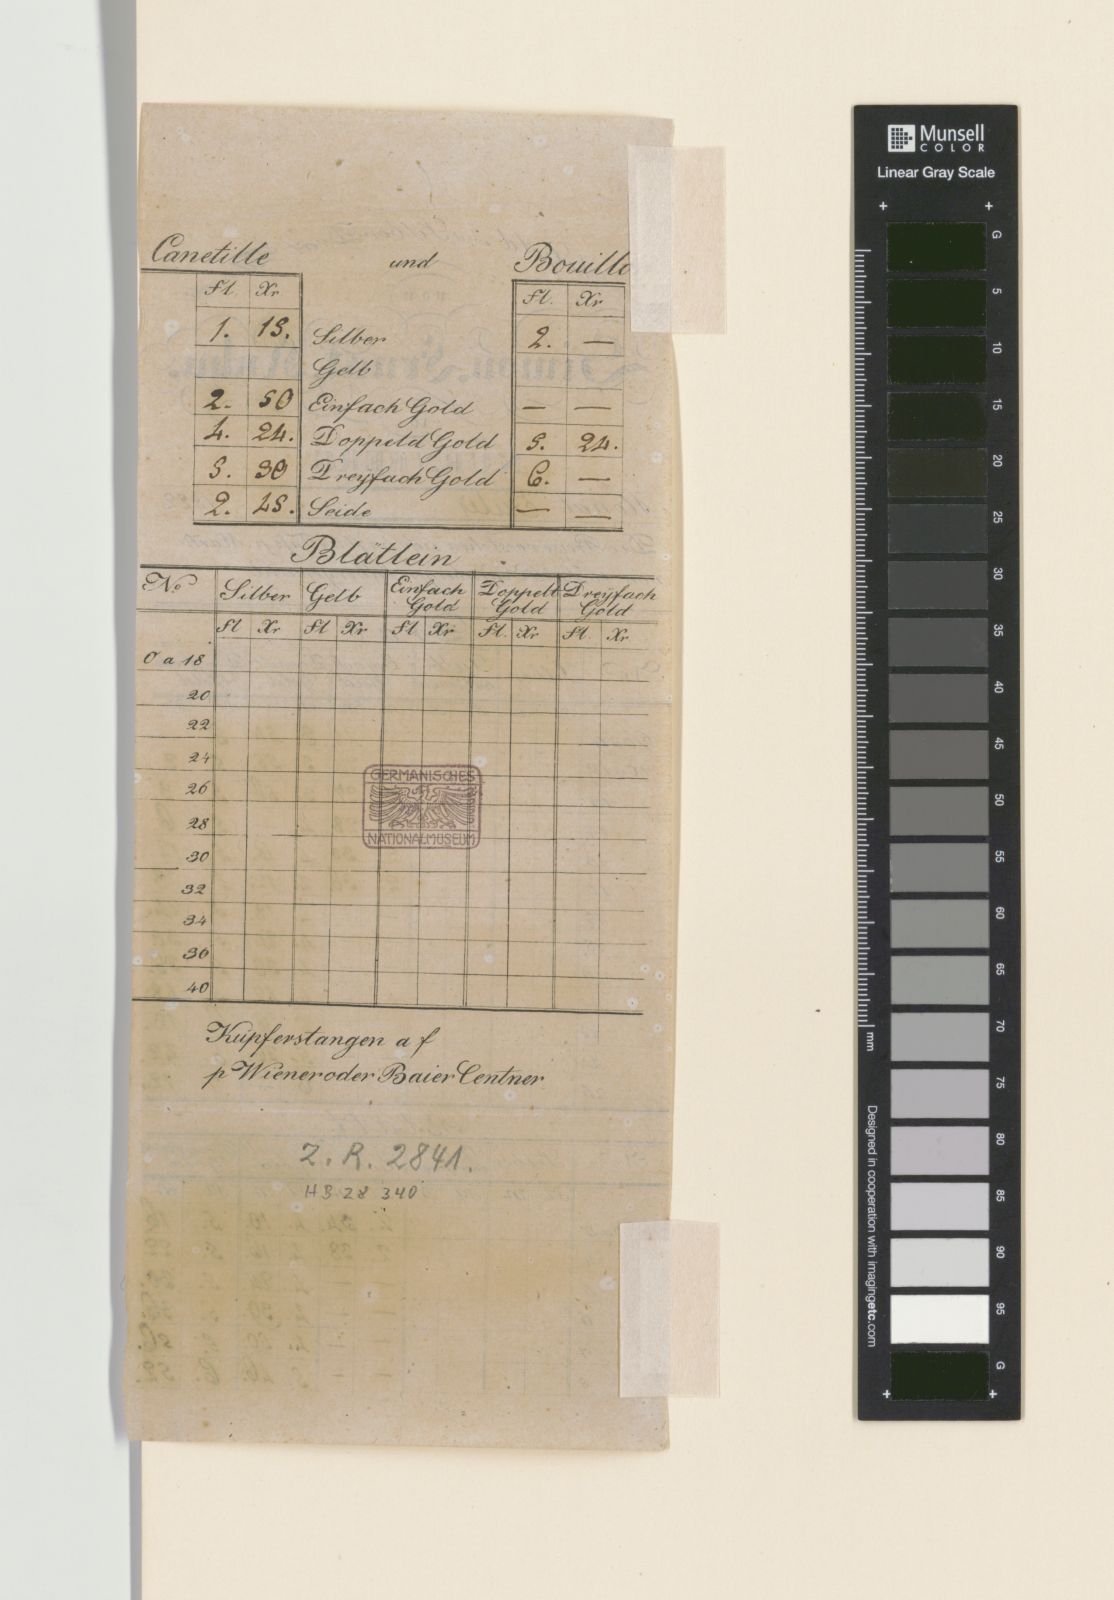 Canetille und Bouillo
Fl. Xr Fl. Xr
1. 15. Silber 2. —
Gelb
2. 50 Einfach Gold — —
4. 24. Doppeld Gold 5. 24.
5. 30 Dreÿfach Gold 6. —
2. 45. Seide — —
Blätlein
No Silber Gelb Einfach Gold Doppelt Gold Dreÿfach Gold
Fl Xr Fl Xr Fl Xr Fl. Xr Fl. Xr
0 a 18
20
22
24
26
28
30
32
34
36
40
GERMANISCHES
NATIONALMUSEUM
Kupferstangen a f
p Wiener oder Baier Centner
Z. R. 2841.
HB 28 340
Munsell
COLOR
Linear Gray Scale
G
5
10
15
20
25
30
35
40
45
50
55
60
65
70
75
80
85
90
95
G
mm
Designed in cooperation with imagingetc.com